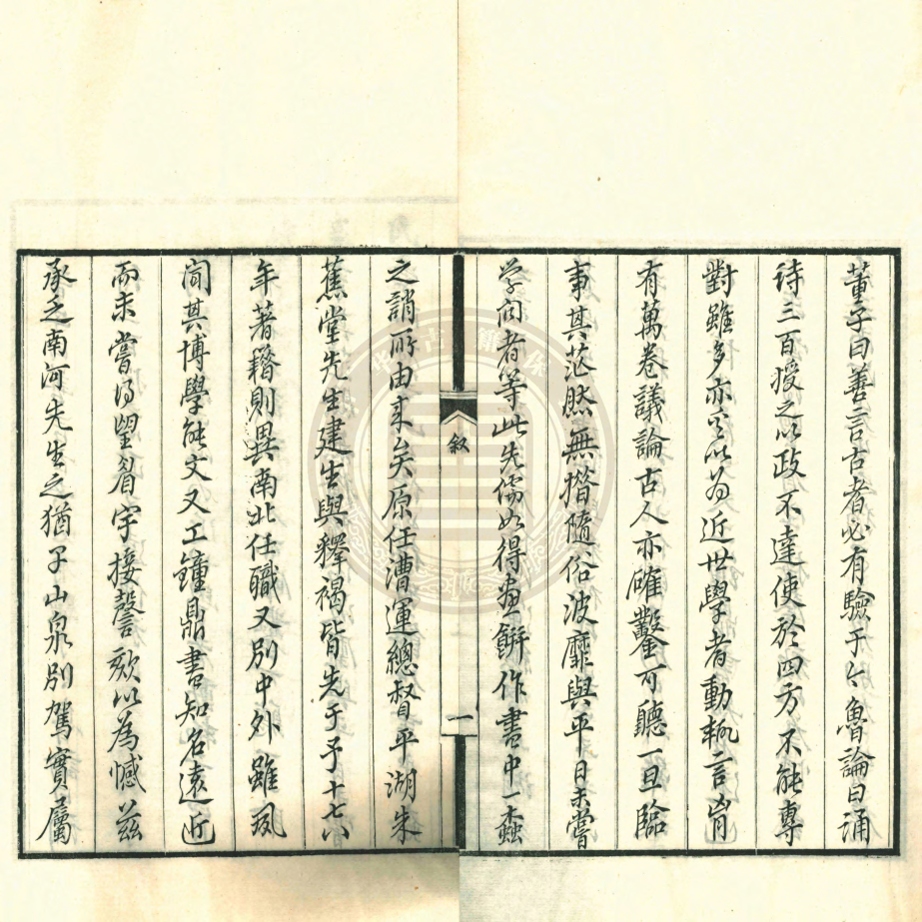 董子曰善言古者必有驗于今魯論曰誦
詩三百授之以政不達使於四方不能專
對雖多亦奚以為近世學者動輒言胷
有萬卷議論古人亦確鑿可聽一旦臨
事其茫然無措隨俗波靡與平日未嘗
学问者等此先儒如得畫餅作書中一蠹
之誚所由来矣原任漕運總督平湖朱
蕉堂先生建生與釋褐皆先于予十七八
年著籍則異南北任職又別中外雖夙
聞其博學能文又工鐘鼎書知名遠近
而未嘗得望眉宇接謦欬以為憾茲
承乏南河先生之猶子山泉別駕實屬
叙
一